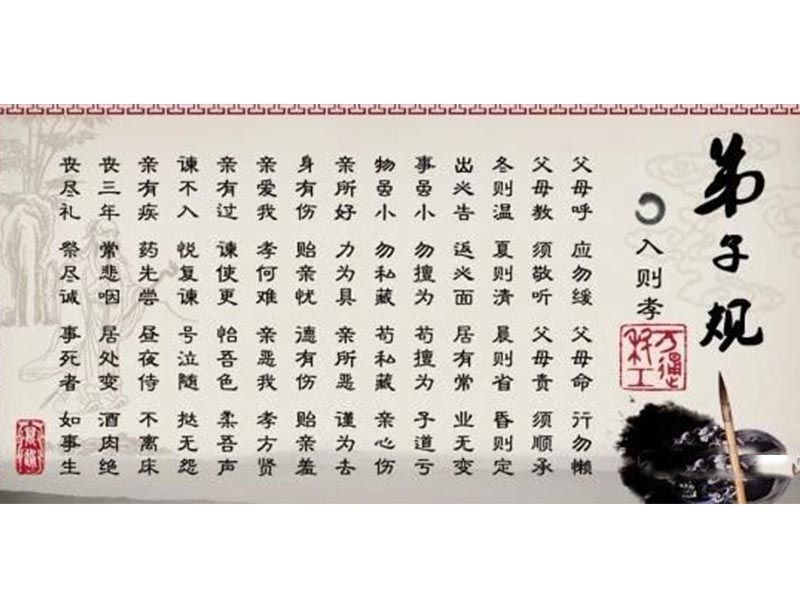 弟子规
入则孝
父母呼 应勿缓 父母命 行勿懒
父母教 须敬听 父母责 须顺承
冬则温 夏则清 晨则省 昏则定
出必告 返必面 居有常 业无变
事虽小 勿擅为 苟擅为 子道亏
物虽小 勿私藏 苟私藏 亲心伤
亲所好 力为具 亲所恶 谨为去
身有伤 贻亲忧 德有伤 贻亲羞
亲爱我 孝何难 亲恶我 孝方贤
亲有过 谏使更 怡吾色 柔吾声
谏不入 悦复谏 号泣随 挞无怨
亲有疾 药先尝 昼夜侍 不离床
丧三年 常悲咽 居处变 酒肉绝
丧尽礼 祭尽诚 事死者 如事生